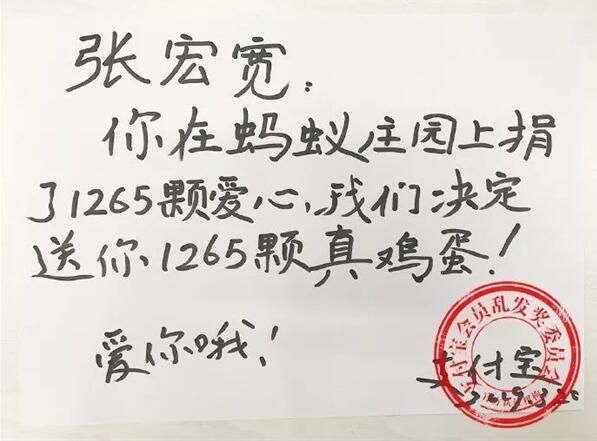 张宏宽：
你在蚂蚁庄园上捐
了1265颗爱心，我们决定
送你1265颗真鸡蛋！
爱你哦！
支付宝会员乱发奖委员会
支付宝